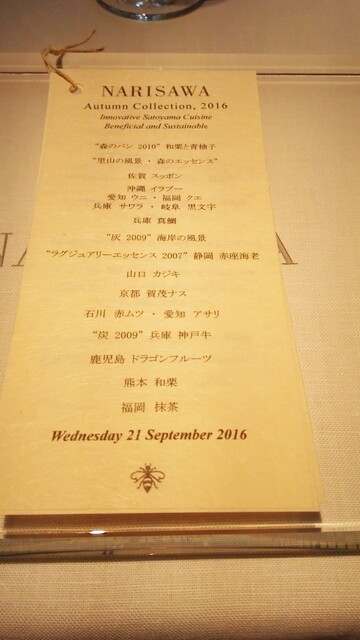 NARISAWA
Autumn Collection, 2016
Innovative Satoyama Cuisine
Beneficial and Sustainable
"森のパン 2010" 和栗と青柚子
"里山の風景・森のエッセンス"
佐賀 スッポン
沖縄 イラブー
愛知 ウニ・福岡 クエ
兵庫 サワラ・岐阜 黒文字
兵庫 真鯛
"灰 2009" 海岸の風景
"ラグジュアリーエッセンス 2007" 静岡 赤座海老
山口 カジキ
京都 賀茂ナス
石川 赤ムツ・愛知 アサリ
"炭 2009" 兵庫 神戸牛
鹿児島 ドラゴンフルーツ
熊本 和栗
福岡 抹茶
Wednesday 21 September 2016